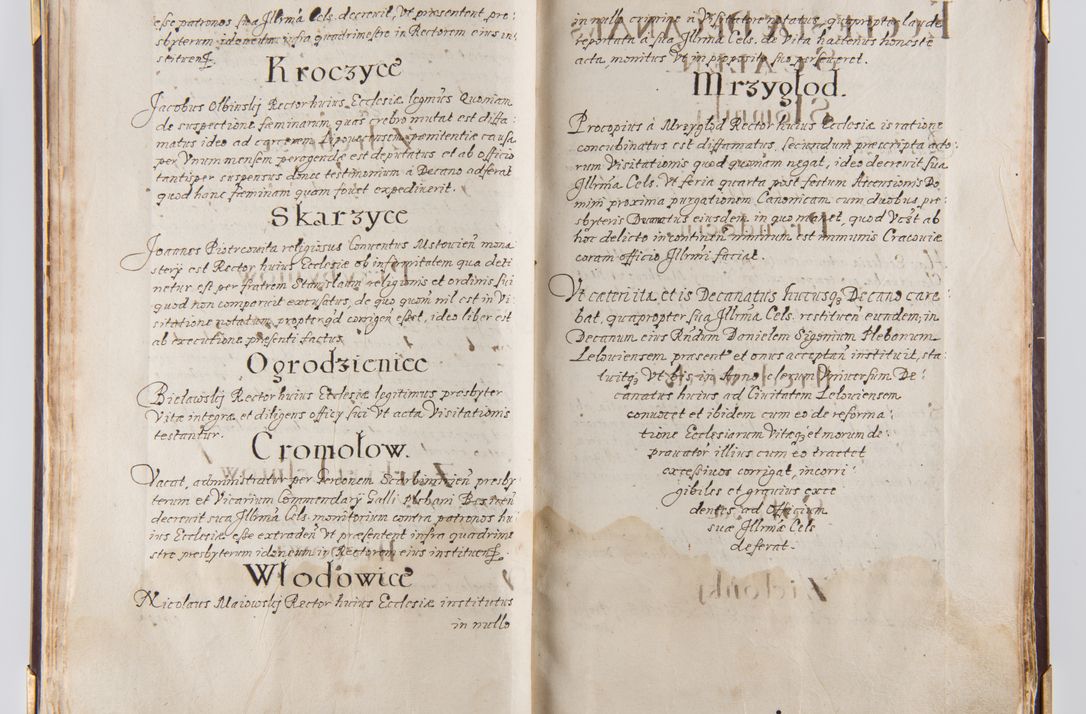 esse patronos sua Jllrma Cels. decrevit, Vt præsentent pre:
sbyterum idoneum infra quadrimestre in Rectorem eius in:
stituen
Kroczyce
Jacobus Olbinskj Rector huius Ecclesiæ legitmus Quoniam
de suspectione fæminarum quas crebro mutat est diffa:
matus ideo ad carcerem Lipovecensem pœnitentiæ causa
per Vnum mensem peragendæ est deputatus et ab officio
tantisper suspensus donec testimonium à Decano adferat
quod hanc fæminam quam fovet expedinerit.
Skarzyce
Joannes Piotrcovita religiosus Conventus Mstovien mona
sterij est Rector huius Ecclesiæ ob infirmitatem qua deti
netur est per fratrem Stanislaum religionis et ordinis sui
quod non comparuit excusatus, de quo quoni nil est in Vi
sitatione notatum propterqd corrigen esset, ideo liber est
ab executione præsenti factus.
Ogrodzienice
Bielawskj Rector huius Ecclesiæ legitimus presbyter
Vitæ integræ et diligens officij sui Vt acta Visitationis
testantur.
Cromołow.
Vacat, administratur per Scarbimirien presby
terum et Vicarium Commendarij Galli
decrevit sua Jllrma Cels. monitorium contra patronos hu
ius Ecclesiæ esse extraden Vt præsentent infra quadrime
stre presbyterum idoneum in Rectorem eius instituen
Włodowice
Nicolaus Maiowskj Rector huius Ecclesiæ institutus
in nullo
in nullo crimine in Visitatione notatus, quapropter laude
reportata à sua Jllrma Cels. de Vita hactenus honeste
acta, monitus Vt in proposito suo perseveret.
Mrzygłod.
Procopius à Mrzygłod Rector huius Ecclesiæ is ratione
concubinatus est diffamatus, secundum præscripta acto:
rum Visitationis quod quoniam negat, ideo decrevit sua
Jllrma Cels. Vt feria quarta post festum Ascensionis Do
mini proxima purgationem Canonicam cum duobus pre:
sbyteris Decanatus eiusdem in quo manet, quod Vczt ab
hoc delicto incontinen minimum est immunis Cracoviæ
coram officio Jllrmi faciat.
Vt cæteri ita et is Decanatus hucusq Decano care
bat, quapropter sua Jllrma Cels. restituen eundem, in
Decanum eius Rndum Danielem Sigonium Plebanum
Lelowiensem præsent et onus acceptan instituit, sta
tuitq Vt bis in Anno clerum Vniversum De:
canatus huius ad Civitatem Lelowiensem
convocet et ibidem cum eo de reforma:
tione Ecclesiarum Vitæq et morum de:
pravator illius cum eo tractet
excessivos corrigat, incorri:
gibiles et gravius exce
dentes ad Officium
suæ Jllrmæ Cels
deferat.